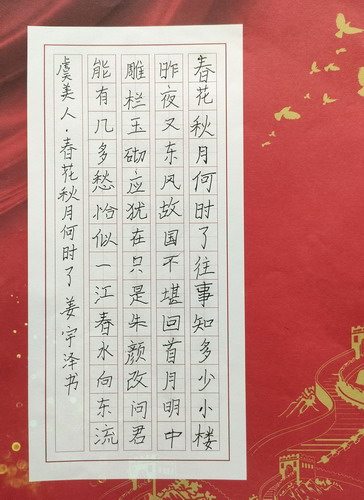 春花秋月何时了往事知多少小楼
昨夜又东风故国不堪回首月明中
雕栏玉砌应犹在只是朱颜改问君
能有几多愁恰似一江春水向东流
虞美人·春花秋月何时了 姜宇泽书